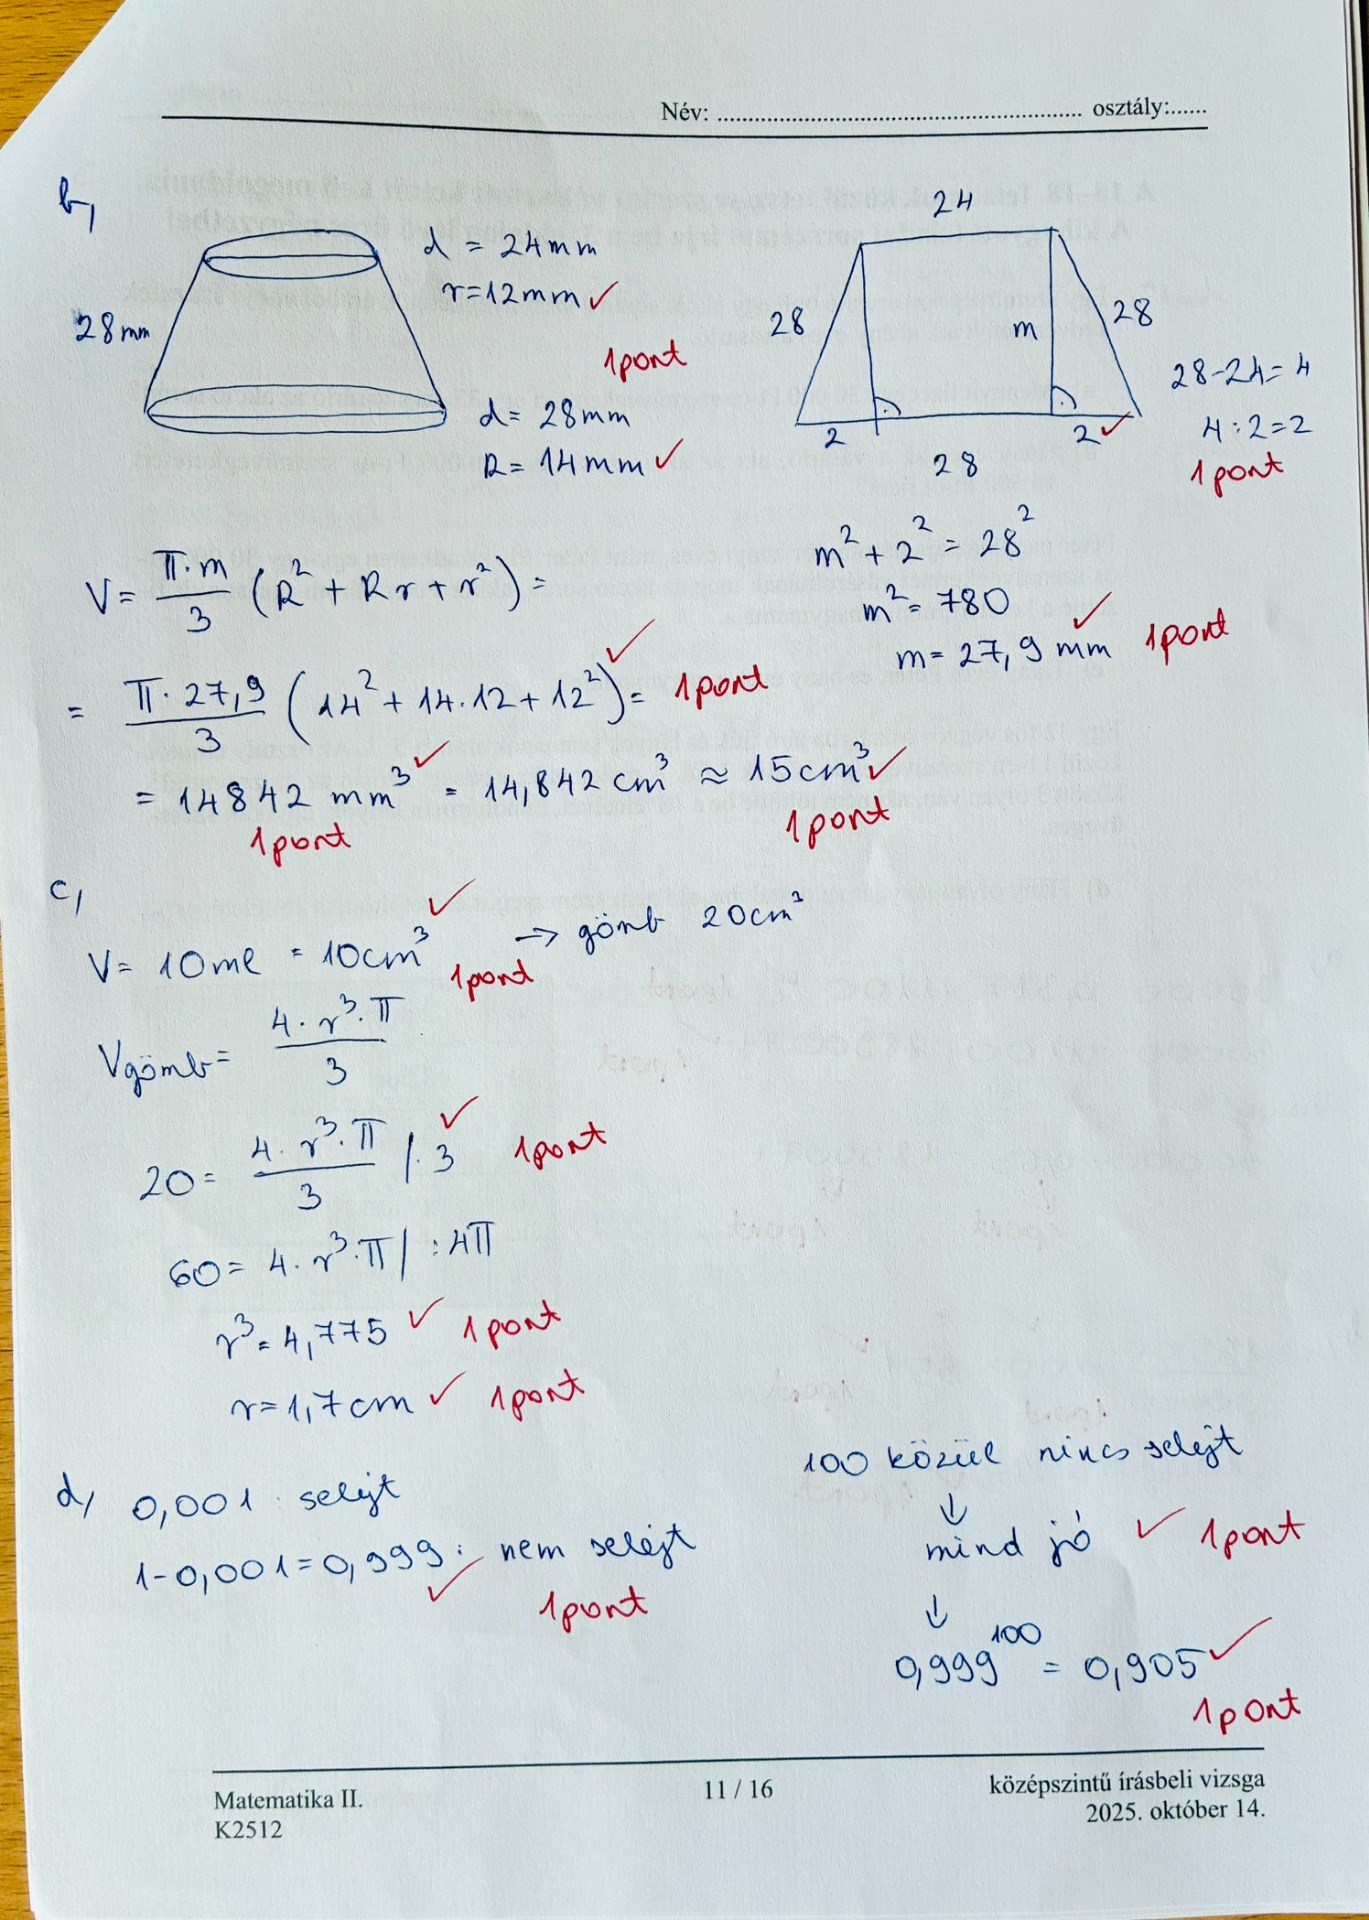 Név: ........................................................ osztály:......
b,
d = 24mm
r=12mm ✓
28mm
1pont
d = 28mm
R = 14mm ✓
24
28
m
28
2
2 ✓
28
28-24=4
4:2=2
1pont
m² + 2² = 28²
m² = 780
m = 27,9 mm ✓ 1pont
V = π·m/3 (R² + Rr + r²) =
= π·27,9/3 (14² + 14·12 + 12²) = ✓ 1pont
= 14842 mm³ ✓ = 14,842 cm³ ≈ 15cm³ ✓
1pont 1pont
c,
V = 10ml = 10cm³ ✓ 1pont → gömb 20cm³
Vgömb = 4·r³·π/3
20 = 4·r³·π/3 /·3 ✓ 1pont
60 = 4·r³·π / :4π
r³ = 4,775 ✓ 1pont
r = 1,7cm ✓ 1pont
d, 0,001 : selejt
1-0,001 = 0,999 : nem selejt
✓ 1pont
100 közül nincs selejt
↓
mind jó ✓ 1pont
↓
0,999¹⁰⁰ = 0,905 ✓
1pont
Matematika II.
K2512
11 / 16
középszintű írásbeli vizsga
2025. október 14.